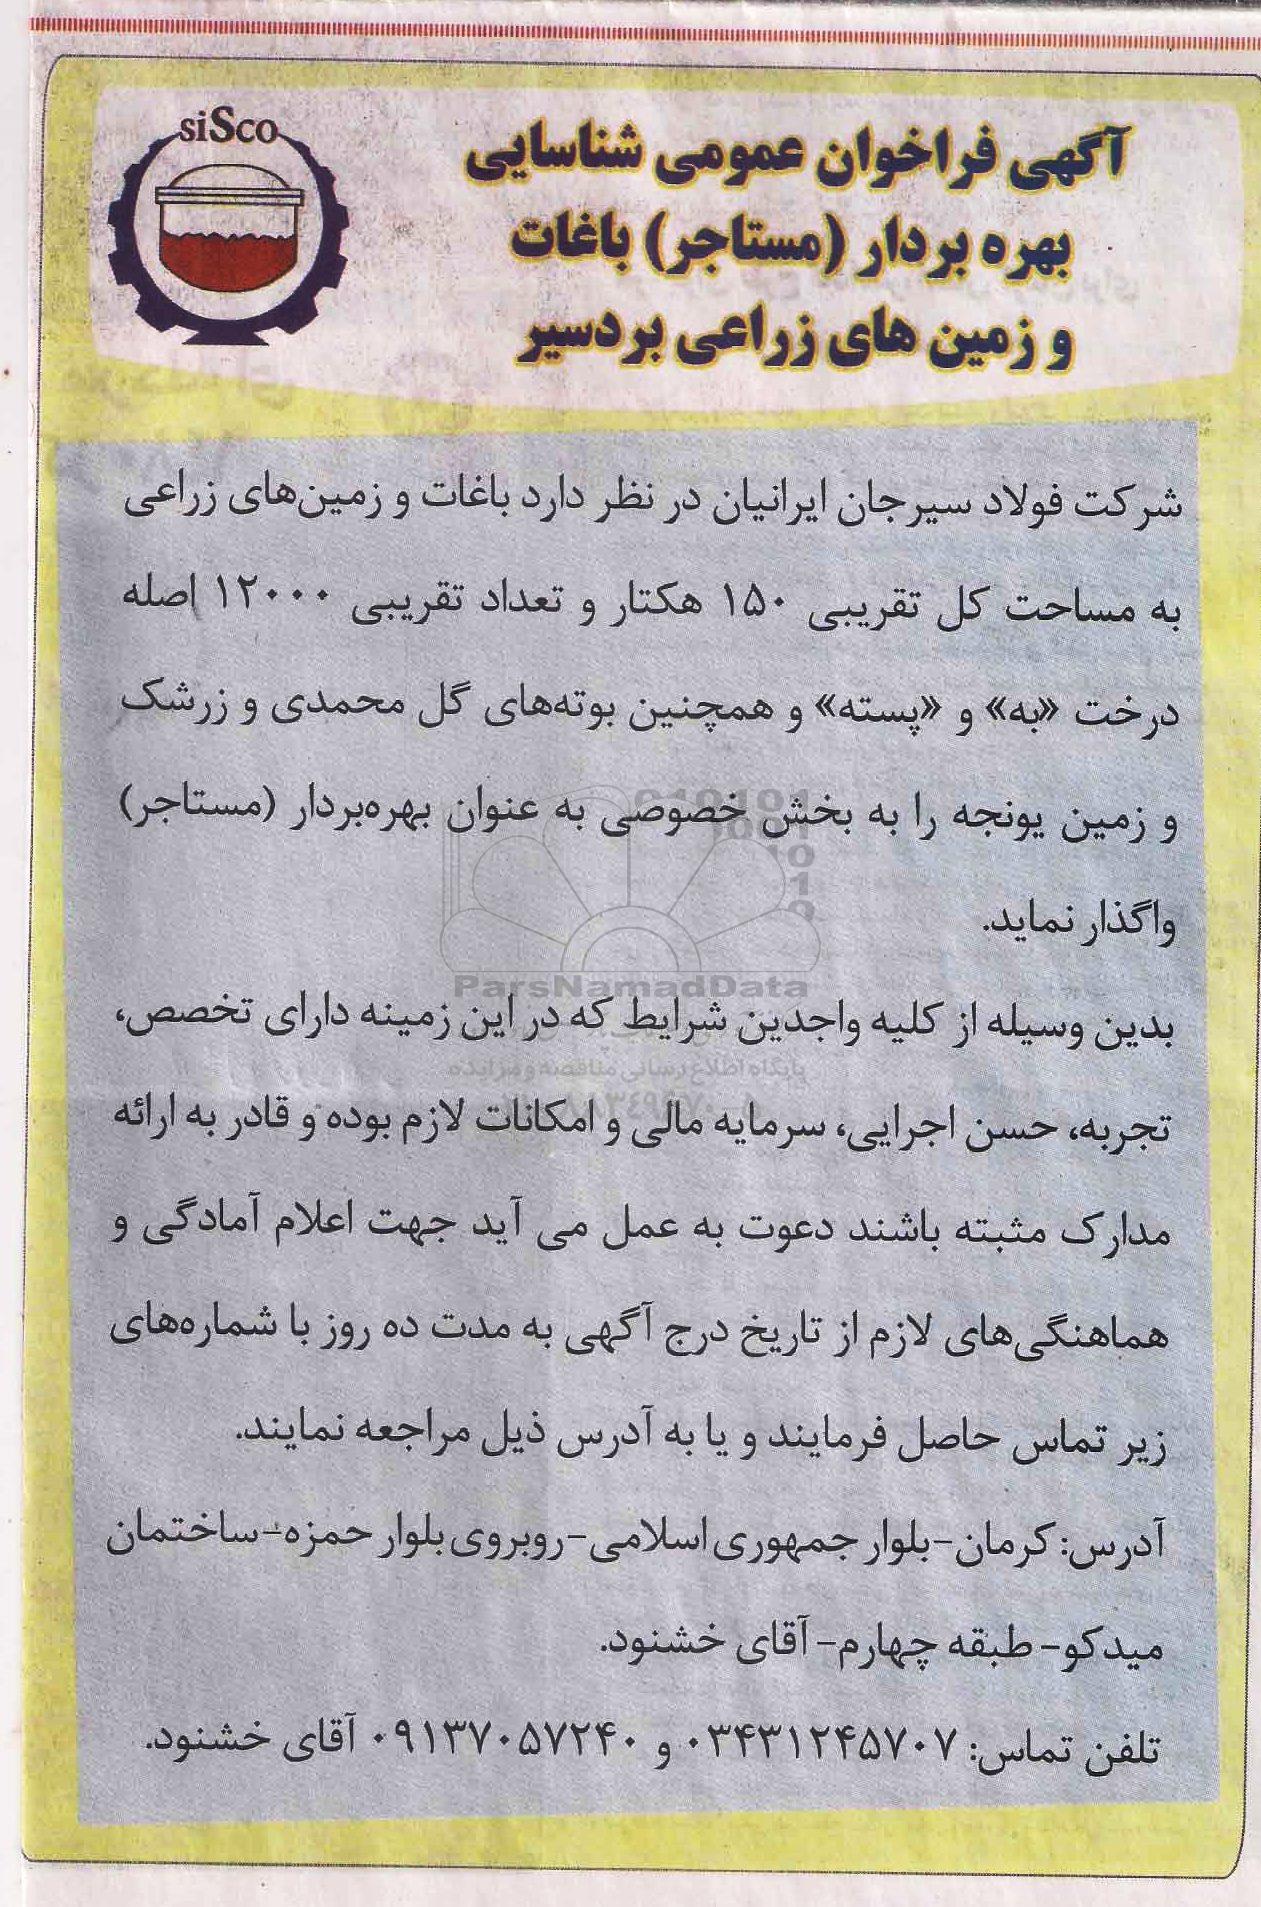 siSco
آگهی فراخوان عمومی شناسایی
بهره بردار (مستاجر) باغات
و زمین های زراعی بردسیر
شرکت فولاد سیرجان ایرانیان در نظر دارد باغات و زمین‌های زراعی
به مساحت کل تقریبی ۱۵۰ هکتار و تعداد تقریبی ۱۲۰۰۰ اصله
درخت «به» و «پسته» و همچنین بوته‌های گل محمدی و زرشک
و زمین یونجه را به بخش خصوصی به عنوان بهره‌بردار (مستاجر)
واگذار نماید.
ParsNamadData
بدین وسیله از کلیه واجدین شرایط که در این زمینه دارای تخصص،
پایگاه اطلاع رسانی مناقصه و مزایده
تجربه، حسن اجرایی، سرمایه مالی و امکانات لازم بوده و قادر به ارائه
مدارک مثبته باشند دعوت به عمل می آید جهت اعلام آمادگی و
هماهنگی‌های لازم از تاریخ درج آگهی به مدت ده روز با شماره‌های
زیر تماس حاصل فرمایند و یا به آدرس ذیل مراجعه نمایند.
آدرس: کرمان-بلوار جمهوری اسلامی-روبروی بلوار حمزه-ساختمان
میدکو- طبقه چهارم- آقای خشنود.
تلفن تماس: ۰۳۴۳۱۲۴۵۷۰۷ و ۰۹۱۳۷۰۵۷۲۴۰ آقای خشنود.